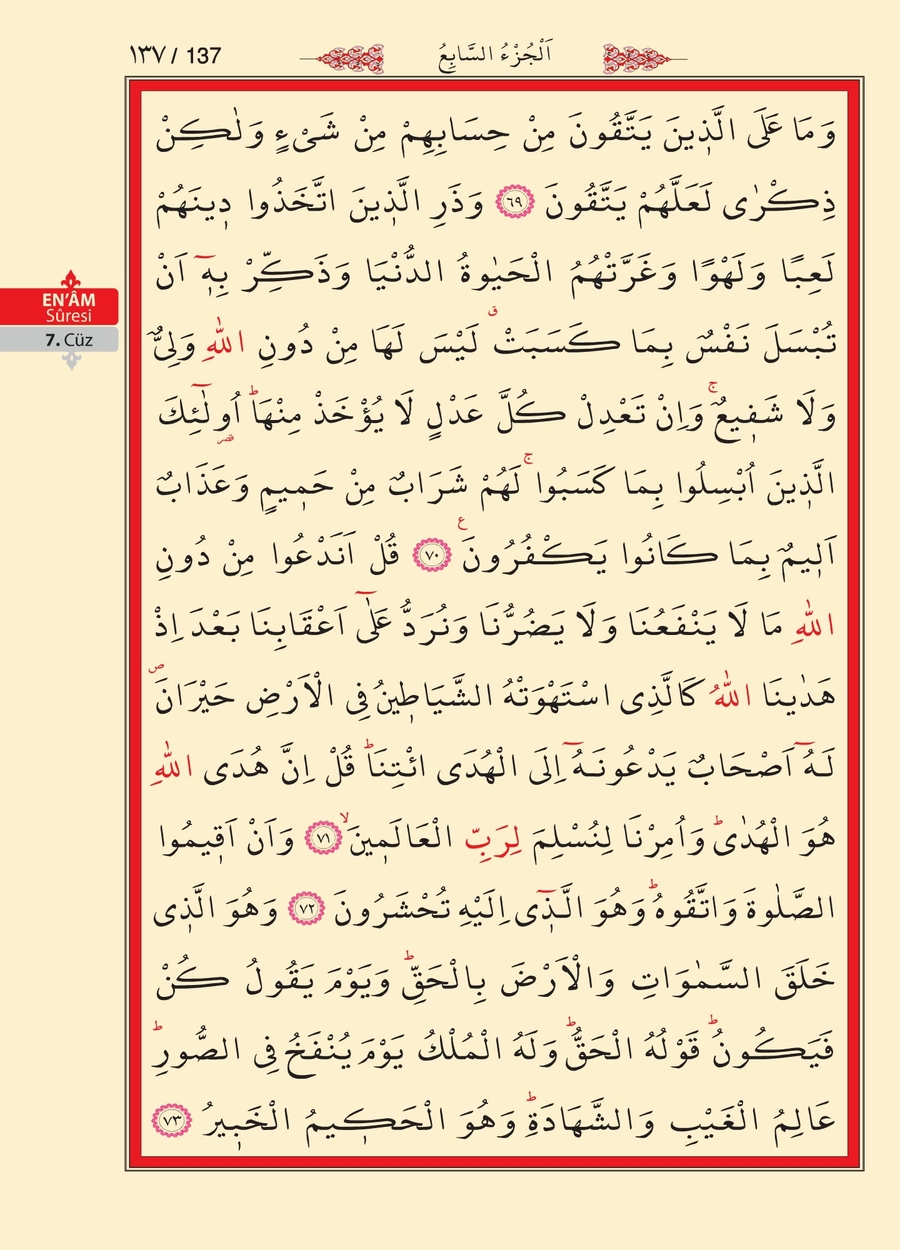 ١٣٧ / 137
اَلْجُزْءُ السَّابِعُ
EN’ÂM
Sûresi
7. Cüz
وَمَا عَلَى الَّذ۪ينَ يَتَّقُونَ مِنْ حِسَابِهِمْ مِنْ شَيْءٍ وَلٰكِنْ
ذِكْرٰى لَعَلَّهُمْ يَتَّقُونَ ﴿٦٩﴾ وَذَرِ الَّذ۪ينَ اتَّخَذُوا د۪ينَهُمْ
لَعِبًا وَلَهْوًا وَغَرَّتْهُمُ الْحَيٰوةُ الدُّنْيَا وَذَكِّرْ بِه۪ٓ اَنْ
تُبْسَلَ نَفْسٌ بِمَا كَسَبَتْۗ لَيْسَ لَهَا مِنْ دُونِ اللّٰهِ وَلِيٌّ
وَلَا شَف۪يعٌۚ وَاِنْ تَعْدِلْ كُلَّ عَدْلٍ لَا يُؤْخَذْ مِنْهَاۜ اُو۬لٰٓئِكَ
الَّذ۪ينَ اُبْسِلُوا بِمَا كَسَبُواۚ لَهُمْ شَرَابٌ مِنْ حَم۪يمٍ وَعَذَابٌ
اَل۪يمٌ بِمَا كَانُوا يَكْفُرُونَ۟ ﴿٧٠﴾ قُلْ اَنَدْعُوا مِنْ دُونِ
اللّٰهِ مَا لَا يَنْفَعُنَا وَلَا يَضُرُّنَا وَنُرَدُّ عَلٰٓى اَعْقَابِنَا بَعْدَ اِذْ
هَدٰينَا اللّٰهُ كَالَّذِى اسْتَهْوَتْهُ الشَّيَاط۪ينُ فِى الْاَرْضِ حَيْرَانَۖ
لَهُٓ اَصْحَابٌ يَدْعُونَهُٓ اِلَى الْهُدَى ائْتِنَاۜ قُلْ اِنَّ هُدَى اللّٰهِ
هُوَ الْهُدٰىۜ وَاُمِرْنَا لِنُسْلِمَ لِرَبِّ الْعَالَم۪ينَۙ ﴿٧١﴾ وَاَنْ اَق۪يمُوا
الصَّلٰوةَ وَاتَّقُوهُۜ وَهُوَ الَّذ۪ٓى اِلَيْهِ تُحْشَرُونَ ﴿٧٢﴾ وَهُوَ الَّذ۪ى
خَلَقَ السَّمٰوَاتِ وَالْاَرْضَ بِالْحَقِّۜ وَيَوْمَ يَقُولُ كُنْ
فَيَكُونُۜ قَوْلُهُ الْحَقُّۜ وَلَهُ الْمُلْكُ يَوْمَ يُنْفَخُ فِى الصُّورِۜ
عَالِمُ الْغَيْبِ وَالشَّهَادَةِۜ وَهُوَ الْحَك۪يمُ الْخَب۪يرُ ﴿٧٣﴾